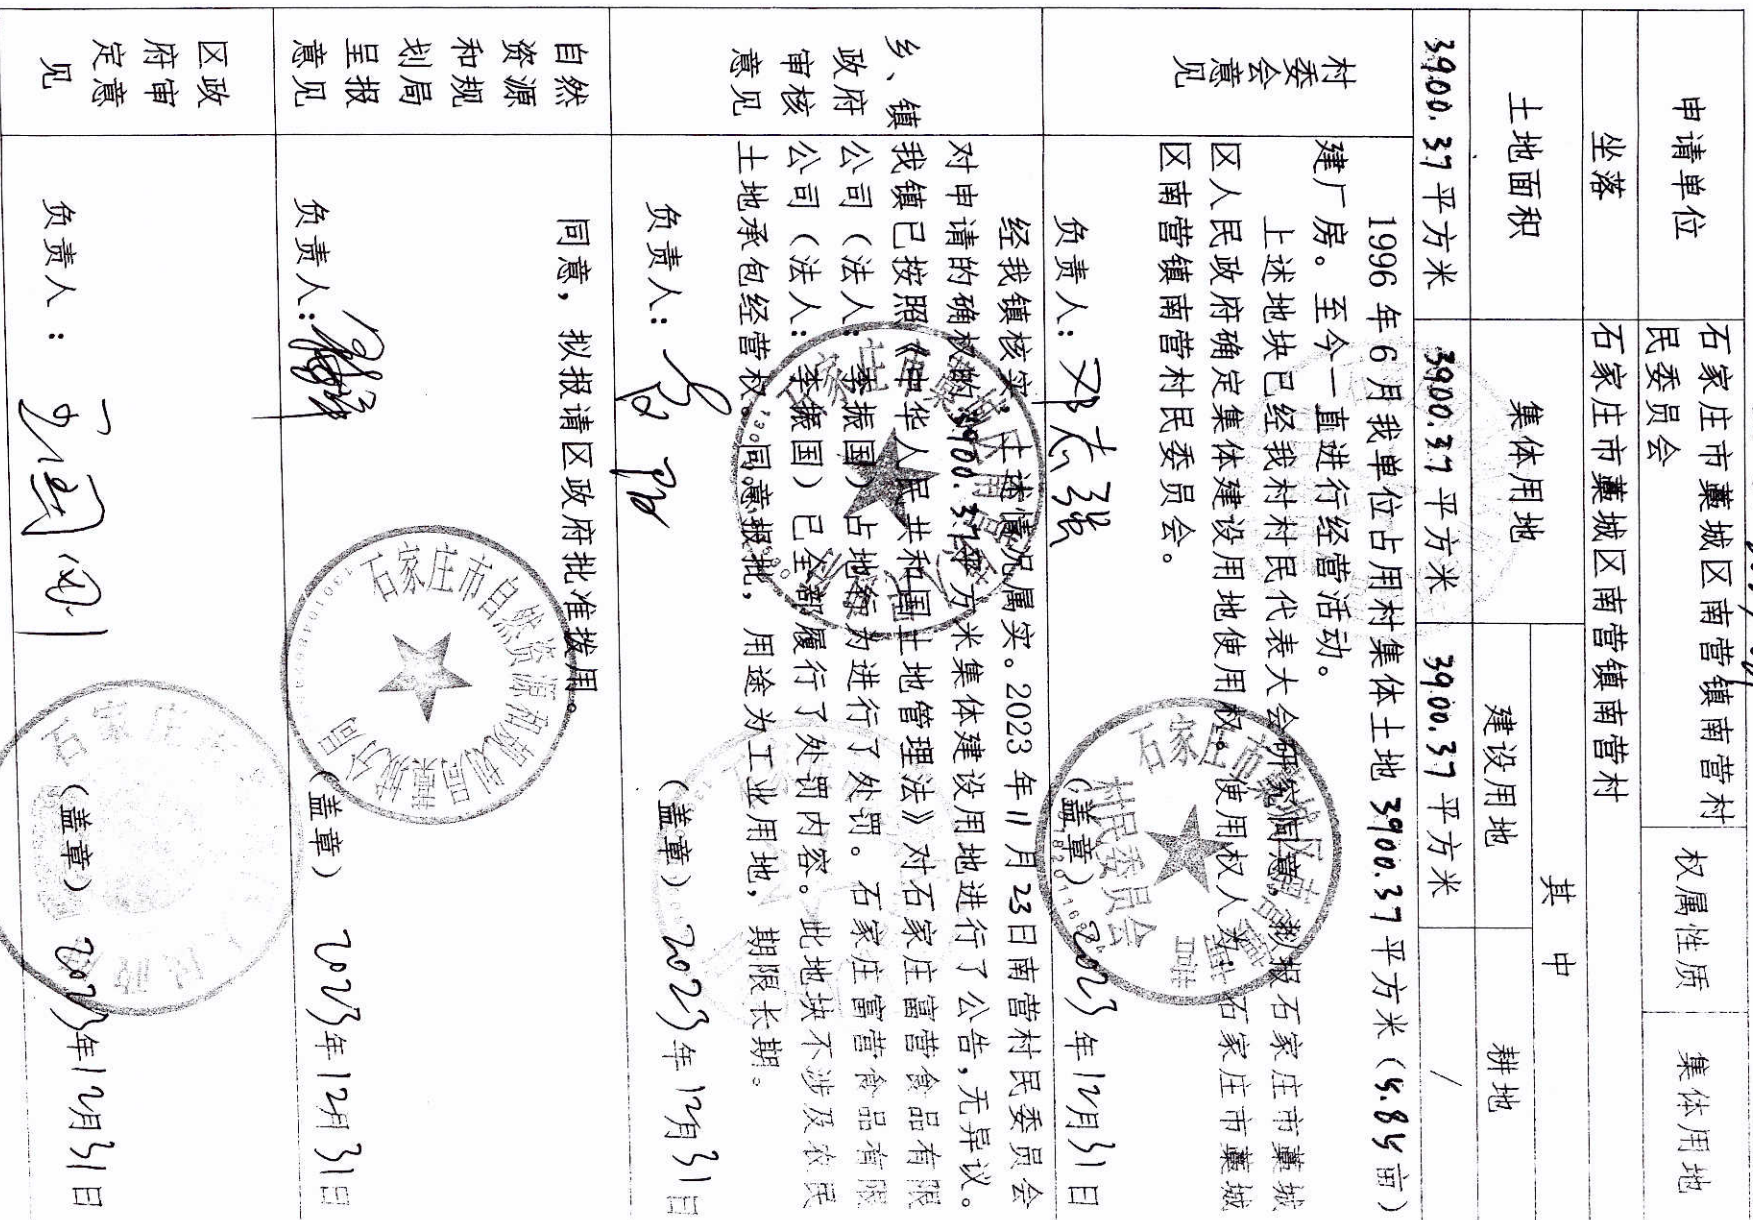 申请单位
石家庄市藁城区南营镇南营村
民委员会
权属性质
集体用地
坐落
石家庄市藁城区南营镇南营村
土地面积
集体用地
其中
建设用地
耕地
3900.37平方米
3900.37平方米
3900.37平方米
/
村委会意见
1996年6月我单位占用村集体土地3900.37平方米（5.85亩）
建厂房。至今一直进行经营活动。
上述地块已经我村村民代表大会研究同意，拟报石家庄市藁城
区人民政府确定集体建设用地使用权。使用权人为：石家庄市藁城
区南营镇南营村民委员会。
负责人：邓志强
（盖章）2023年12月31日
乡、镇
政府
审核
意见
经我镇核实，上述情况属实。2023年11月23日南营村民委员会
对申请的确权的3900.37平方米集体建设用地进行了公告，无异议。
我镇已按照《中华人民共和国土地管理法》对石家庄富营食品有限
公司（法人：李振国）占地行为进行了处罚。石家庄富营食品有限
公司（法人：李振国）已全部履行了处罚内容。此地块不涉及农民
土地承包经营权。同意报批，用途为工业用地，期限长期。
负责人：
（盖章）2023年12月31日
自然
资源
和规
划局
呈报
意见
同意，拟报请区政府批准拨用。
负责人：
（盖章）2023年12月31日
石家庄市自然资源和规划局藁城分局
区政
府审
定意
见
负责人：
（盖章）2023年12月31日